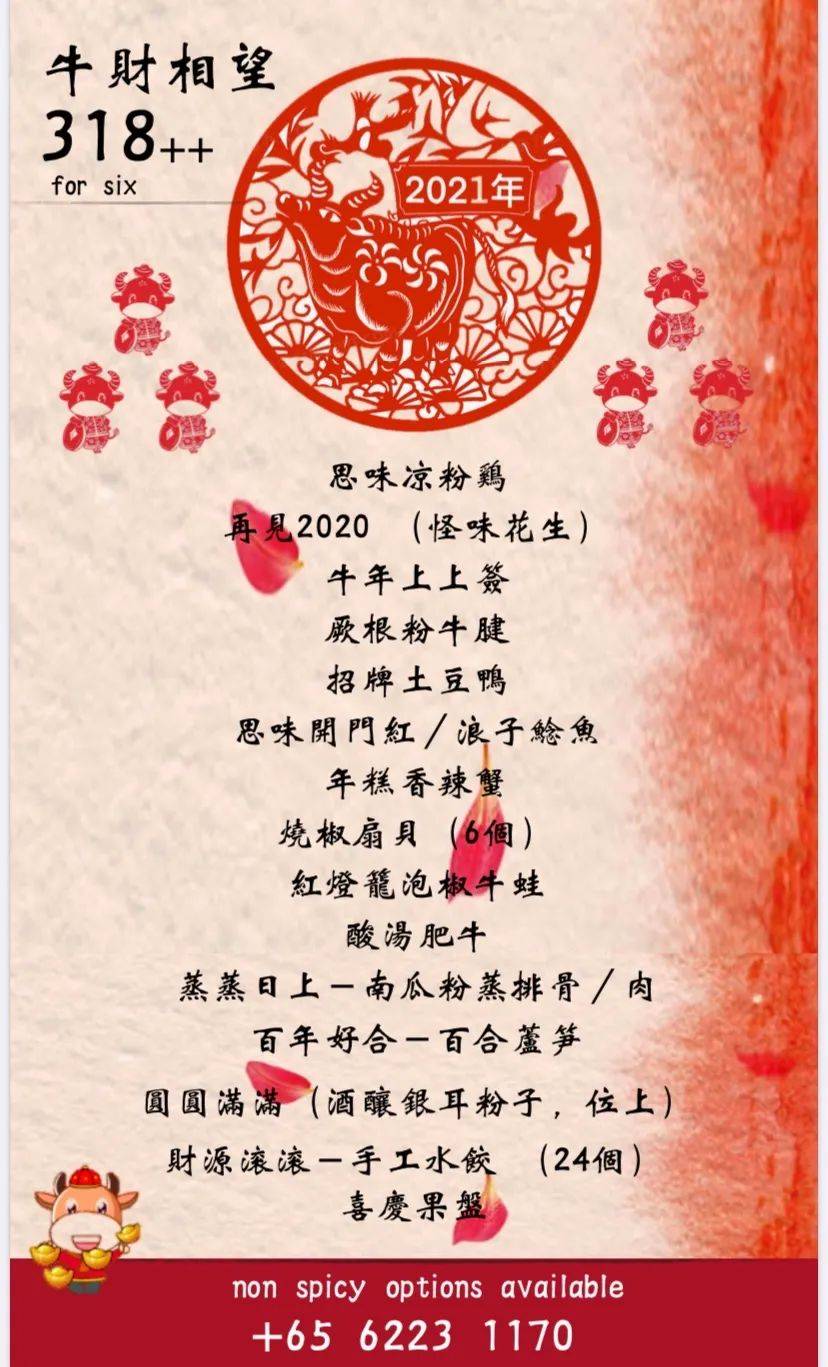 牛財相望
318++
for six
2021年
思味凉粉鷄
再見2020 （怪味花生）
牛年上上簽
厥根粉牛腱
招牌土豆鴨
思味開門紅／浪子鯰魚
年糕香辣蟹
燒椒扇貝（6個）
紅燈籠泡椒牛蛙
酸湯肥牛
蒸蒸日上－南瓜粉蒸排骨／肉
百年好合－百合蘆笋
圓圓滿滿（酒釀銀耳粉子，位上）
財源滚滚－手工水餃 （24個）
喜慶果盤
non spicy options available
+65 6223 1170